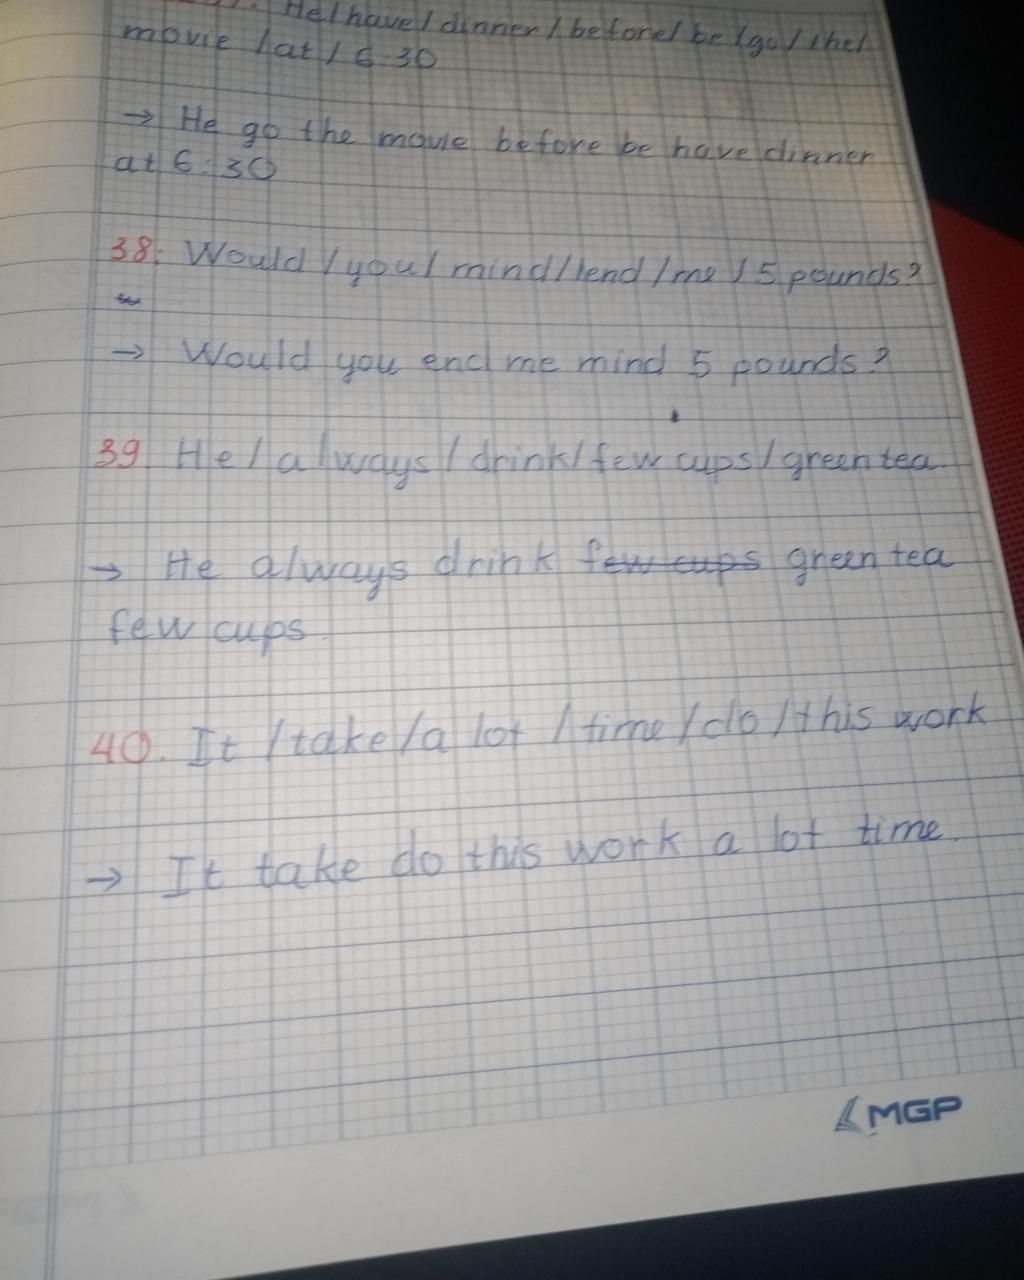 He/have/dinner/before/be/go/the/
movie/at/6.30
→ He go the movie before be have dinner
at 6:30
38: Would/you/mind/lend/me/5 pounds?
→ Would you end me mind 5 pounds?
39 He/always/drink/few cups/green tea
→ He always drink few cups green tea
few cups
40. It/take/a lot/time/do/this work
→ It take do this work a lot time.
MGP